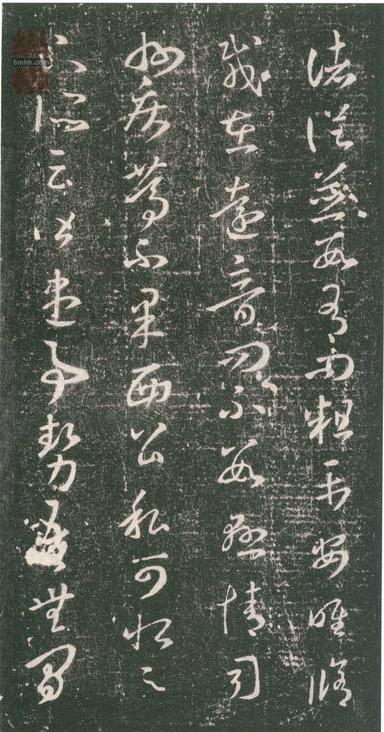 諸從並數有問粗平安唯脩
載在遠音問不數懸情司
州疾篤不果西公私可恨足
下所云皆盡事勢吾無間
8mhh.com